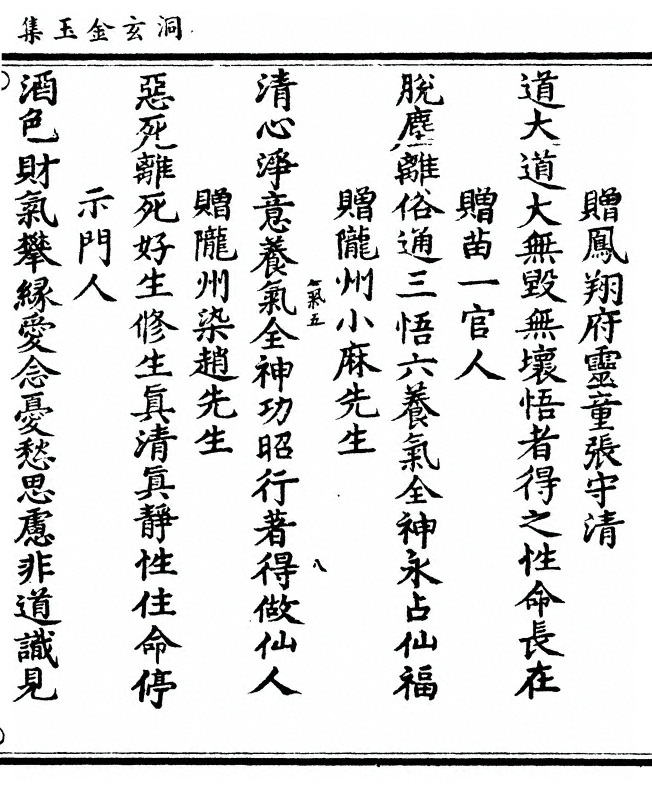 洞玄金玉集
贈鳳翔府靈童張守清
道大道大無毀無壞悟者得之性命長在
贈苗一官人
脫塵離俗通三悟六養氣全神永占仙福
贈隴州小麻先生
氣五
八
清心淨意養氣全神功昭行著得做仙人
贈隴州染趙先生
惡死離死好生修生眞清眞靜性住命停
示門人
酒色財氣攀緣愛念憂愁思慮非道識見